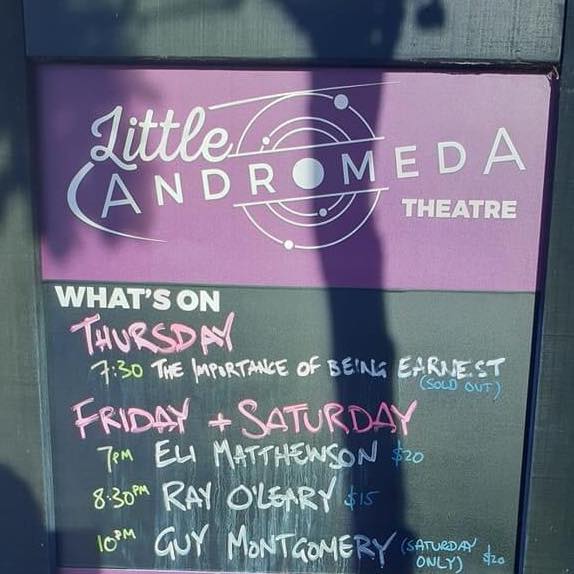 Little
ANDROMEDA
THEATRE
WHAT'S ON
THURSDAY
7:30 THE IMPORTANCE OF BEING EARNEST
(SOLD OUT)
FRIDAY + SATURDAY
7PM ELI MATTHEWSON $20
8:30PM RAY O'LEARY $15
10PM GUY MONTGOMERY (SATURDAY
ONLY) $20